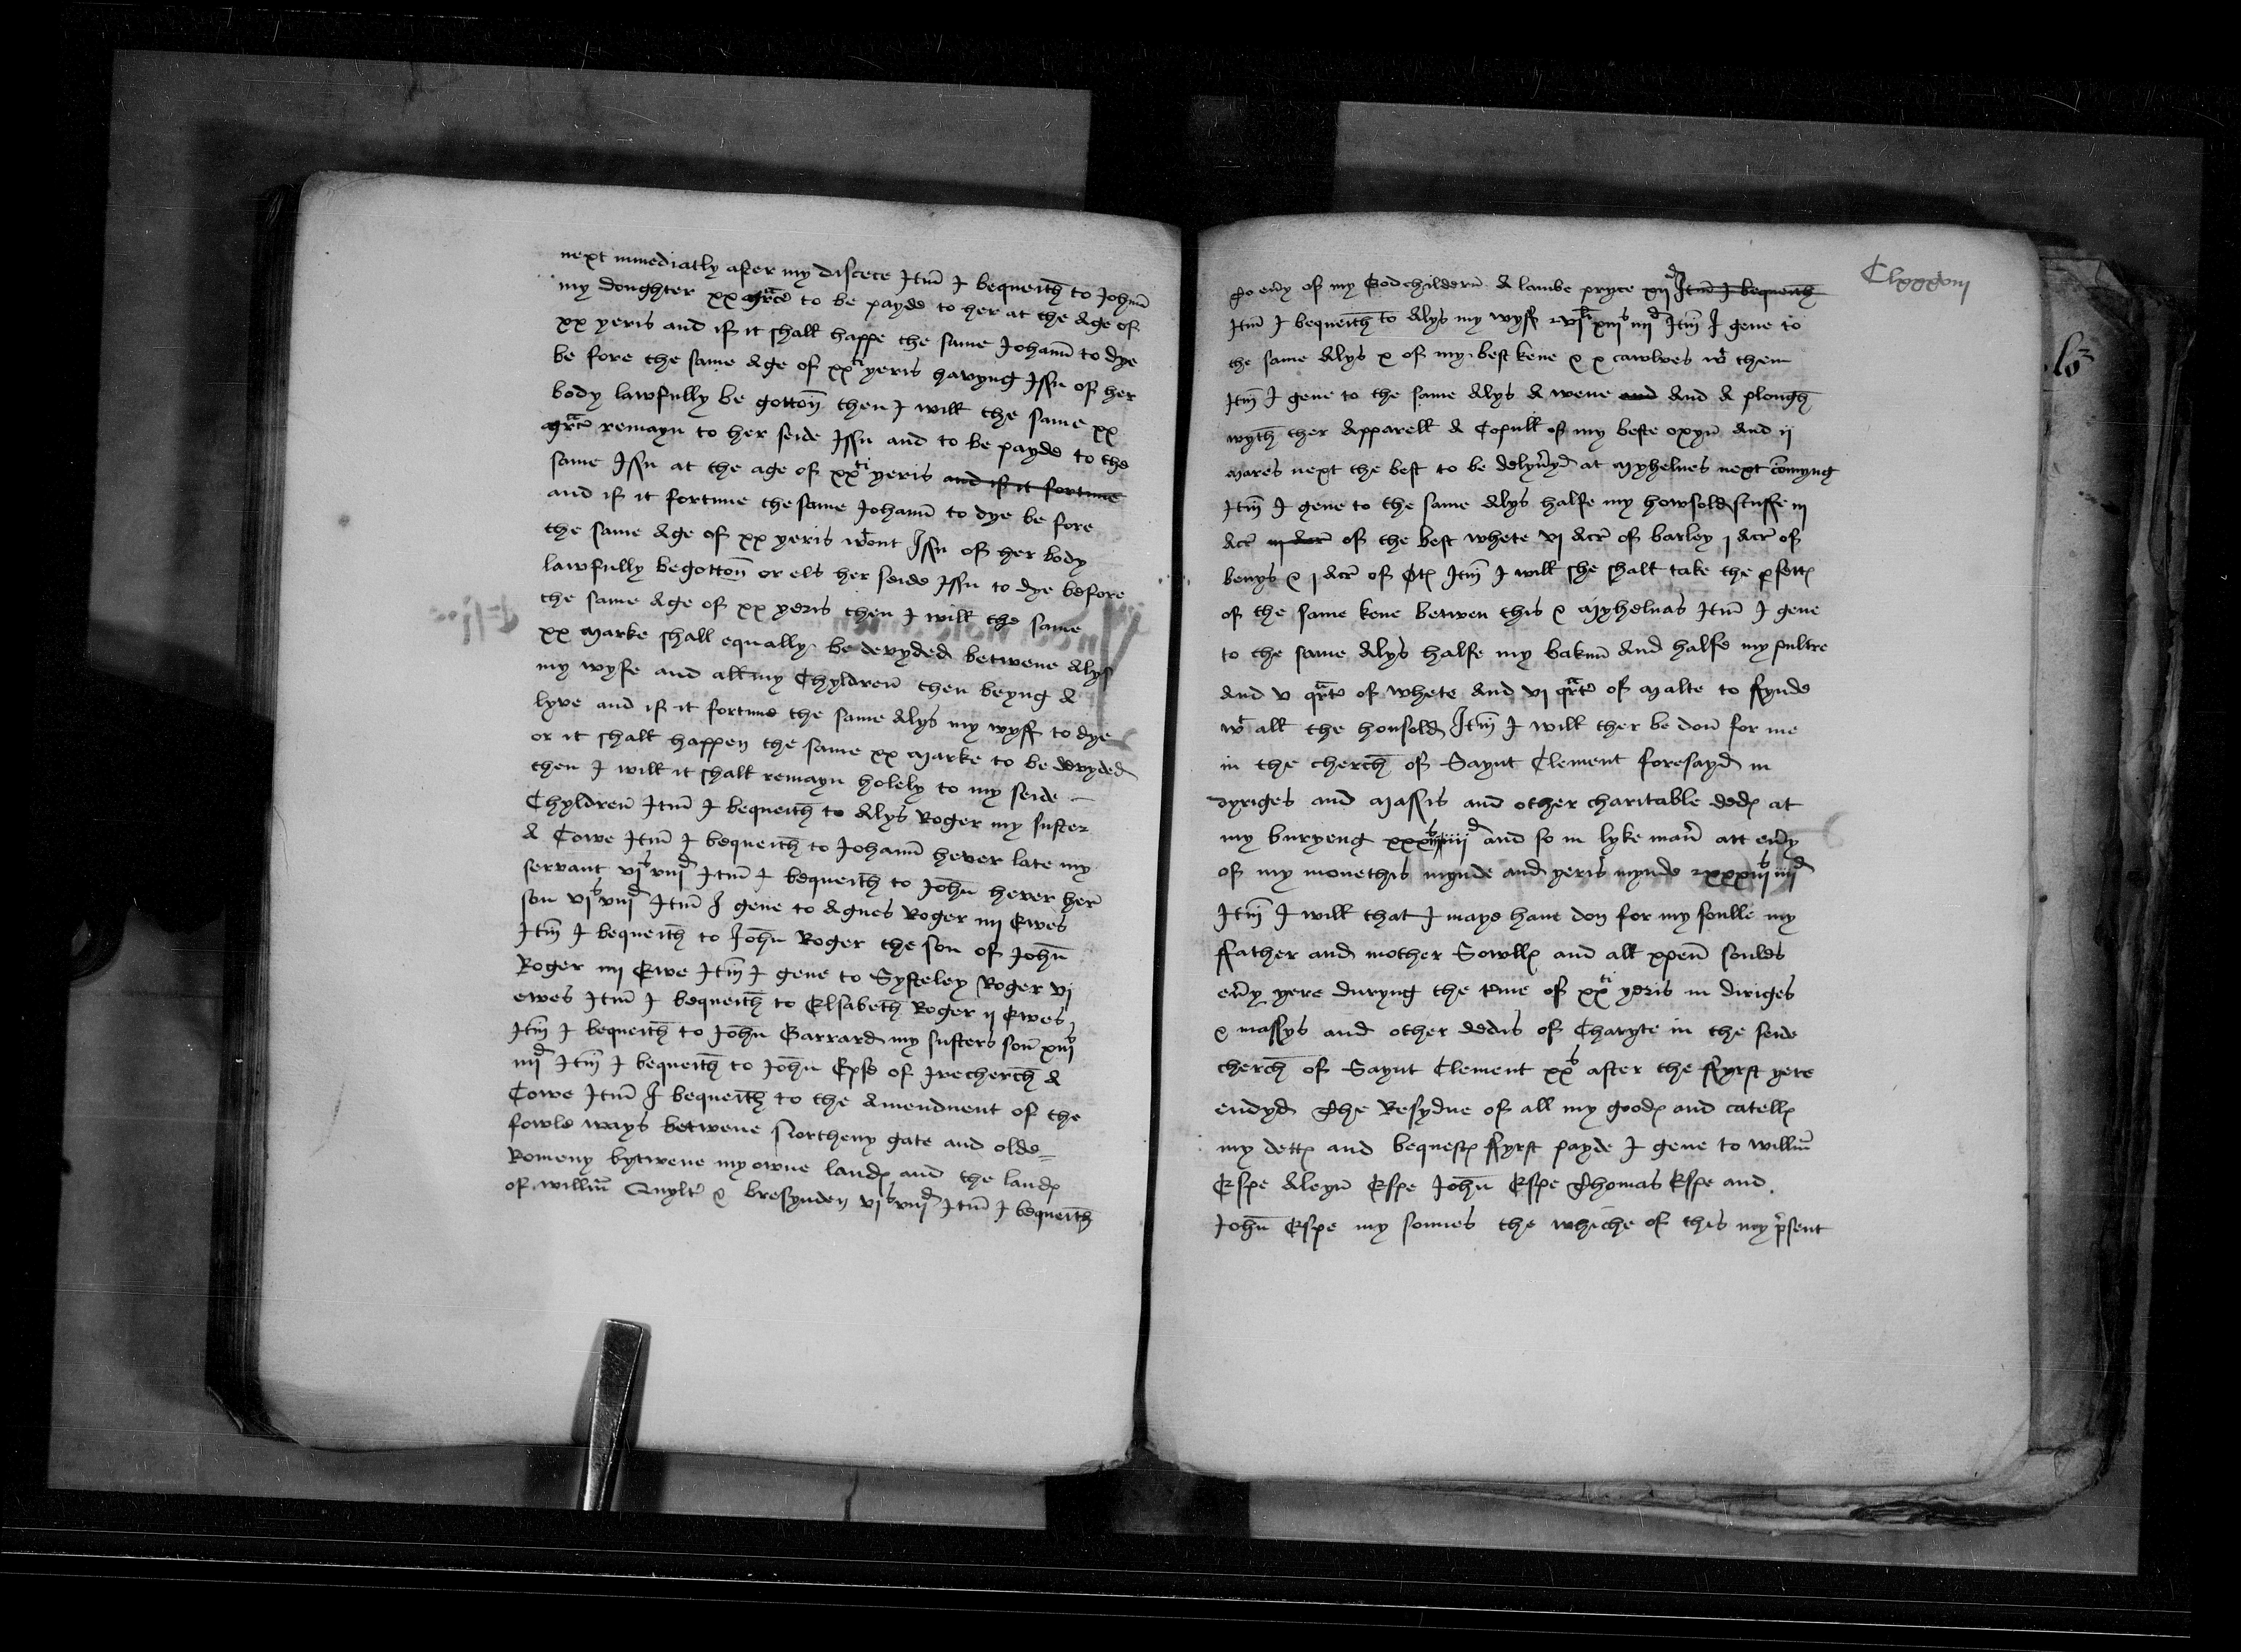 next immediatly after my discece Itm̄ I bequeith to Johan̄
my doughter xx mr̃ce to be payde to her at the Age of
xx yeris and if it shall happe the same Johan̄ to dye
be fore the same Age of xxti yeris havyng Issu of her
body lawfully be gotton̄ then I will the same xx
mr̃ce remayn to her seide Issu and to be payde to the
same Issu at the age of xxti yeris and if it fortune
and if it fortune the same Johan̄ to dye be fore
the same Age of xx yeris wtout Issu of her body
lawfully begotton̄ or els her seide Issu to dye before
the same Age of xx yeris then I will the same
xx Marke shall equally be devyded betwene Alys
my wyfe and all my Chyldren̄ then beyng A
lyve and if it fortune the same Alys my wyff to dye
or it shall happen the same xx Marke to be devyded
then I will it shall remayn holely to my seide
Chyldren̄ Itm̄ I bequeith to Alys Roger my suster
A Cowe Itm̄ I bequeith to Johan̄ hever late my
servant vjs viijd Itm̄ I bequeith to John̄ hever her
son vjs viijd Itm̄ I geve to Agnes Roger iiij Ewes
Itm̄ I bequeith to John̄ Roger the son of John̄
Roger iiij Ewe Itm̄ I geve to Systeley Roger vj
ewes Itm̄ I bequeith to Elsabeth Roger ij Ewes
Itm̄ I bequeith to John̄ Garrard my susters son̄ xiijs
iiijd Itm̄ I bequeith to John̄ Epse of Ivecherch A
Cowe Itm̄ I bequeith to the Amendment of the
fowle ways betwene Northeny gate and olde=
Romeny bytwene my owne landꝭ and the landꝭ
of Willm̄ Quylt̉ & bresynden vjs viijd Itm̄ I bequeith
Clxxxviij
To eṽy of my Godchildern̄ A lambe pryce xijd Itm̄ I bequeith
Itm̄ I bequeith to Alys my wyff vjli xiijs iiijd Itm̄ I geve to
the same Alys x of my best kene & x cawlves wt them
Itm̄ I geve to the same Alys A wene and And A plough
wyth ther Apparell A Copull of my beste oxyn̄ And ij
Mares next the best to be delyṽyd at Myhelmes next com̄yng
Itm̄ I geve to the same Alys halfe my howsold stuffe iij
Acr̃ iij Acr̃ of the best whete vj Acr̃ of barley j Acr̃ of
benys & j Acr̃ of Otꝭ Itm̄ I will she shall take the ꝓfettꝭ
of the same kene betwen this & Myhelmas Itm̄ I geve
to the same Alys halfe my bakun̄ And halfe my pultre
And v qrte of whete And vj qrte of Malte to ffynde
wt all the housold Itm̄ I will ther be don̄ for me
in the cherch of Saynt Clement foresayd in
dyriges and Massis and other charitable dedꝭ at
my buryeng xxxiijs iiijd and so in lyke man̄ att eṽy
of my monethis mynde and yeris mynde xxxiijs iiijd
Itm̄ I will that I maye have don for my soulle my
ffather and mother Sowllꝭ and all xpen̄ soulds
eṽy yere duryng the t̉me of xxti yeris in diriges
& massys and other dedis of Charyte in the seide
cherch of Saynt Clement xxs after the ffyrst yere
endyd The Resydue of all my goodꝭ and catellꝭ
my dettꝭ and bequestꝭ ffyrst payde I geve to Willm̄
Espe Aleyn̄ Espe John̄ Espe Thomas Espe and
John̄ Espe my sonnes the whiche of this my p̉sent